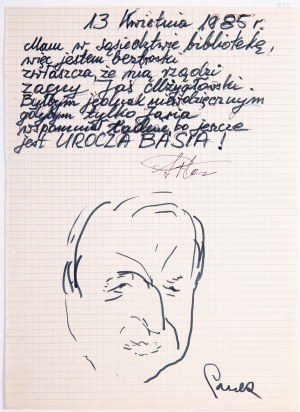 13 Kwietnia 1985 r.
Mam w sąsiedztwie bibliotekę,
więc jestem beztroski
zwłaszcza, że nią rządzi
zacny Jaś
Byłbym jednak niewdzięcznym
gdybym tylko Jasia
wspomniał bo jeszcze
jest UROCZA BASIA!